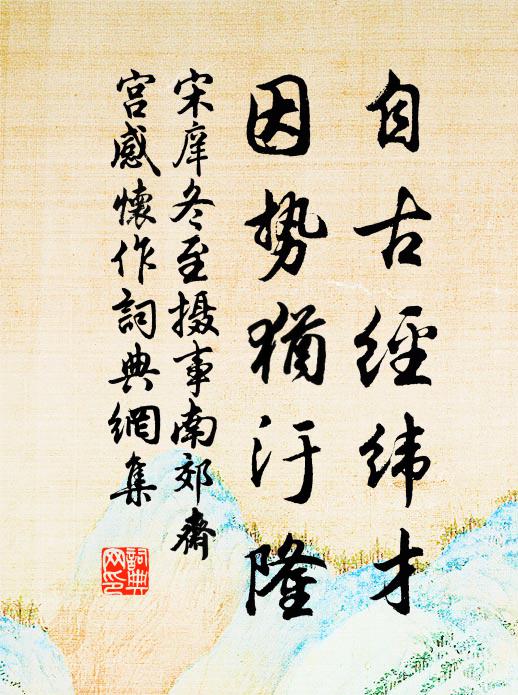 自古經緯才
因势猶汙隆
宋庠冬至摄事南郊齋
宫感懷作詞典網集
詞典
网印